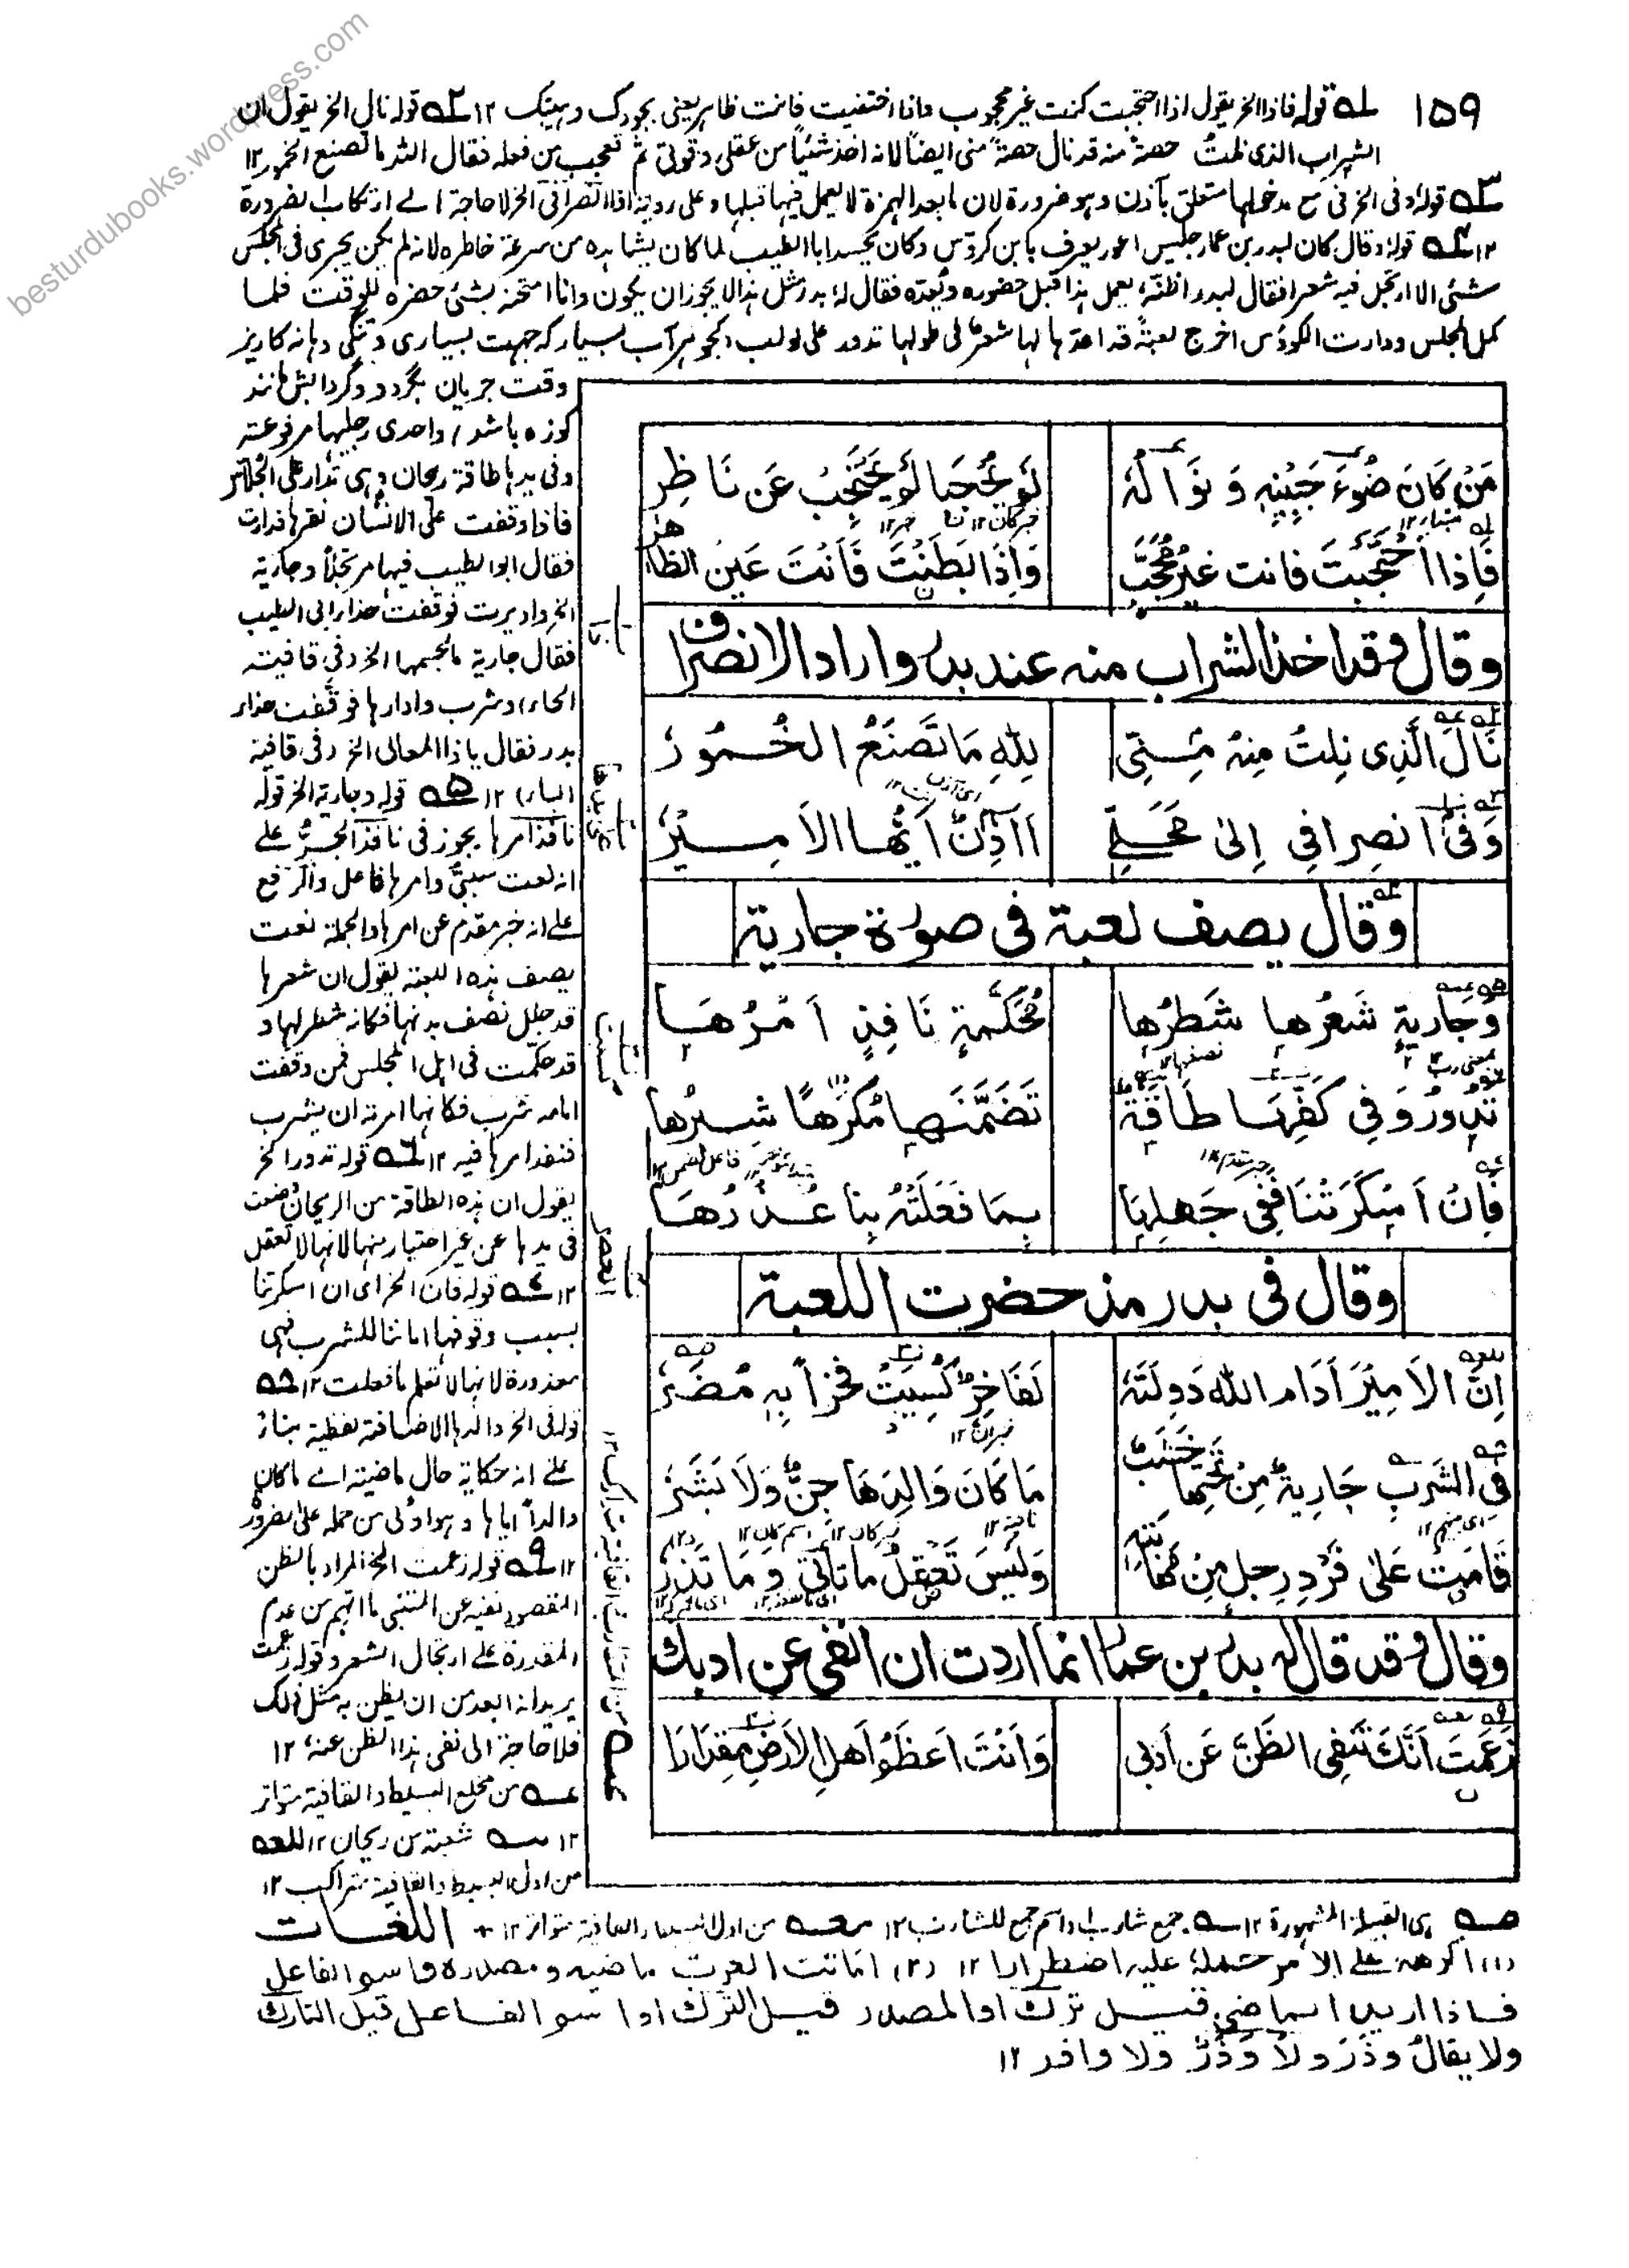 besturdubooks.wordpress.com
١٥٩
له قوله فاذا الخ يقول اذا احتجبت كنت غير محجوب واذا اختفيت فانت ظاهر يعنى بجودك وهيبتك ١٢ قوله نال الخ يقول ان
الشراب الذى نلتُ حصةً منه قد نال حصةً منى ايضًا لانه اخذ شيئًا من عقلى وقوتى ثم تعجب من فعله فقال لله ما تصنع الخمور ١٢
قوله وفى الخ فى مع مدخولها متعلق بآذن وهو ضرورة لان ما بعد الهمزة لا يعمل فيها قبلها وعلى رواية اذا انصرافى الخ لا حاجة الے ارتكاب الضرورة
١٢ قوله وقال كان لبدر بن عمار جليس اعور يعرف بابن كروّس وكان يحسد ابا الطيب لما كان يشاهده من سرعة خاطره لانه لم يكن يجرى فى المجلس
شئى الا ارتجل فيه شعرا فقال لبدر اظنّه يعمل هذا قبل حضوره ويُعدّه فقال له بدر مثل هذا لا يجوز ان يكون وانا امتحنه بشئى حضره للوقت فلما
كمل المجلس ودارت الكؤس اخرج لعبةً قد اعدّها لها شعر فى طولها تدور على لولب
وقت جريان بگردد وگردانش مانند
كوزه باشد / واحدى رجليها مرفوعته
وفى يدها طاقة ريحان وهى تدار على الجلاس
فاذا وقفت على الانسان نقرها فدارت
فقال ابو الطيب فيها مرتجلًا وجارية
الخ واديرت فوقفت حذاء ابى الطيب
فقال جارية ما لجسمها الخ وفى قافيته
الحاء، وشرب وادارها فوقفت حذاء
بدر فقال يا ذا المعالى الخ وفى قافية
الباء) ١٢ قوله وجارية الخ قوله
نافذ امرها يجوز فى نافذ الجرُّ علے
انه نعت سببىٌّ وامرها فاعل والرفع
علے انه خبر مقدم عن امرها والجملة نعت
يصف هذه اللعبة يقول ان شعرها
قد جلل نصف بدنها فكانه شطر لها و
قد حكّمت فى اهل المجلس فمن وقفت
امامه شرب فكانها امرته ان يشرب
فنفذ امرها فيه ١٢ قوله تدور الخ
يقول ان هذه الطاقة من الريحان وضعت
فى يدها عن غير اختيار منها لانها لا تعقل
١٢ قوله فان الخ اى ان اسكرتنا
بسبب وقوفها امامنا للشرب فهى
معذورة لانها لا تعلم ما فعلت ١٢
قوله فى الخ والدها الاضافة لفظية بناءً
علے انه حكاية حال ماضية اے ما كان
والدًا اياها وهو اولى من حمله على الضرورة
١٢ قوله زعمت الخ المراد بالظن
المقصود نفيه عن المتنبى ما اتهم من عدم
المقدرة علے ارتجال الشعر وقوله زعمت
يريد انه ابعد من ان يظن به مثل ذلك
فلا حاجة الى نفى هذا الظن عنه ١٢
عه من مخلع البسيط والقافية متواتر
١٢ سه شعبة من ريحان ١٢ للعه
من اول البسيط والقافية متراكب ١٢
مَنْ كَانَ ضُوءَ جَبِيْنِهٖ وَ نَوَالُهٗ لَمْ يُحْجَبَا لَمْ يَحْتَجِبْ عَن نَاظِرٍ
فَاِذَا احْتَجَبْتَ فانت غيرُ مُحَجَّبٍ وَاِذَا بَطَنْتَ فَاَنْتَ عَيْنُ الظَّاهِرِ
وقال وقد اخذ الشراب منه عند بدر واراد الانصراف
نَالَ الَّذِى نِلتُ مِنهُ مِنِّى لِلّٰهِ مَا تَصْنَعُ الخُمُورُ
وَفِىْ انصِرافِى اِلىٰ مَحَلِّى اَآذِنٌ اَيُّهَا الاَمِيْرُ
وقال يصف لعبة فى صورة جارية
وَجَارِيَةٍ شَعْرُها شَطْرُها مُحَكَّمَةٍ نَافِذٍ اَمْرُهَا
تَدُورُ وَفِى كَفِّهَا طَاقَةٌ تَضَمَّنَهَا مُكْرَهًا شِبْرُها
فَاِنْ اَسْكَرَتْنَا فَفِى جَهْلِهَا بِمَا فَعَلَتْهُ بِنا عُذْرُهَا
وقال فى بدر مذ حضرت اللعبة
اِنَّ الاَمِيْرَ اَدَام الله دَوْلَتَهٗ لَفَاخِرٌ كُسِيَتْ فَخْراً بِهٖ مُضَرٗ
فِى الشَّربِ جَارِيَةٌ مِنْ تَحْتِها خَشَبٌ مَا كَانَ وَالِدَهَا جِنٌّ وَلَا بَشَرٗ
قَامَتْ عَلىٰ فَرْدِ رِجلٍ مِنْ مَهَابَتِهٖ وَلَيْسَ تَعْقِلُ ما تاتِى وَ مَا تَذَرُ
وقال وقد قال له بدر بن عمار انما اردت ان انفى عن ادبك
زَعَمْتَ اَنَّكَ تَنْفِى الظَّنَّ عَن اَدَبِى وَاَنْتَ اَعْظَمُ اَهلِ الاَرضِ مِقدَارَا
هى القبيلة المشهورة ١٢ جمع شارب او اسم جمع للشارب ١٢ من اول البسيط والقافية متواتر ١٢ + اللغات
(١) اكرهه علے الأمر حمله عليه اضطرارا ١٢ (٢) اماتت العرب ماضيه و مصدره واسم الفاعل
فاذا اريد الماضى قيل ترك او المصدر قيل الترك او اسم الفاعل قيل التارك
ولا يقال وَذَرَ ولا وَذْرٌ ولا واذر ١٢